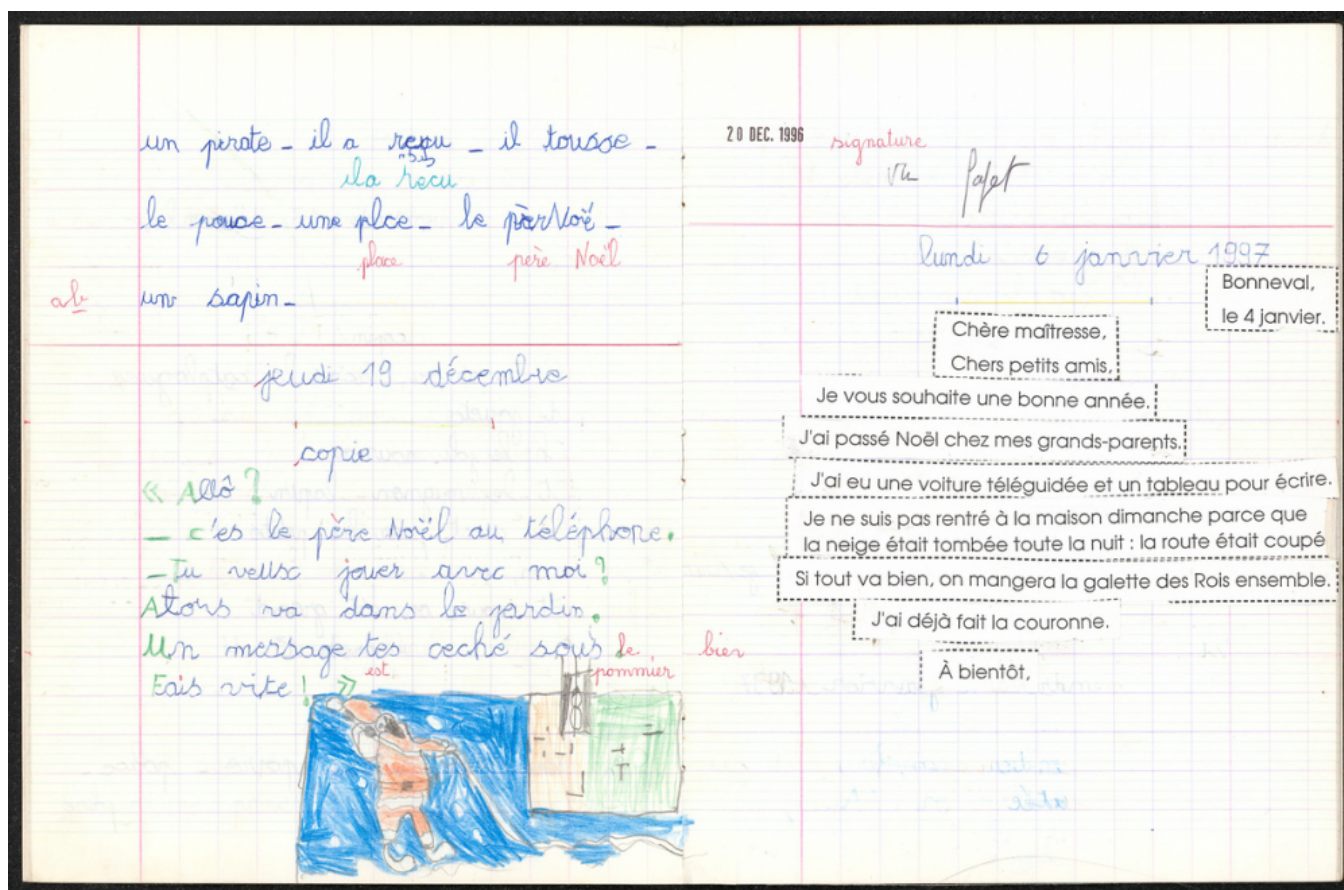 un pirate - il a reçu - il tousse -
il a reçu
le pouce - une plce - le pèrNoë -
place père Noël
ab un sapin -
jeudi 19 décembre
copie
« Allô ?
- c'es le père Noël au téléphone.
- Tu veusc jouer avec moi ?
Alors va dans le jardin.
Un message tes ceché sous le
est pommier
Fais vite ! »
20 DEC. 1996 signature
vu
lundi 6 janvier 1997
Bonneval,
le 4 janvier.
Chère maîtresse,
Chers petits amis,
Je vous souhaite une bonne année.
J'ai passé Noël chez mes grands-parents.
J'ai eu une voiture téléguidée et un tableau pour écrire.
Je ne suis pas rentré à la maison dimanche parce que
la neige était tombée toute la nuit : la route était coupé
Si tout va bien, on mangera la galette des Rois ensemble.
J'ai déjà fait la couronne.
bien
À bientôt,